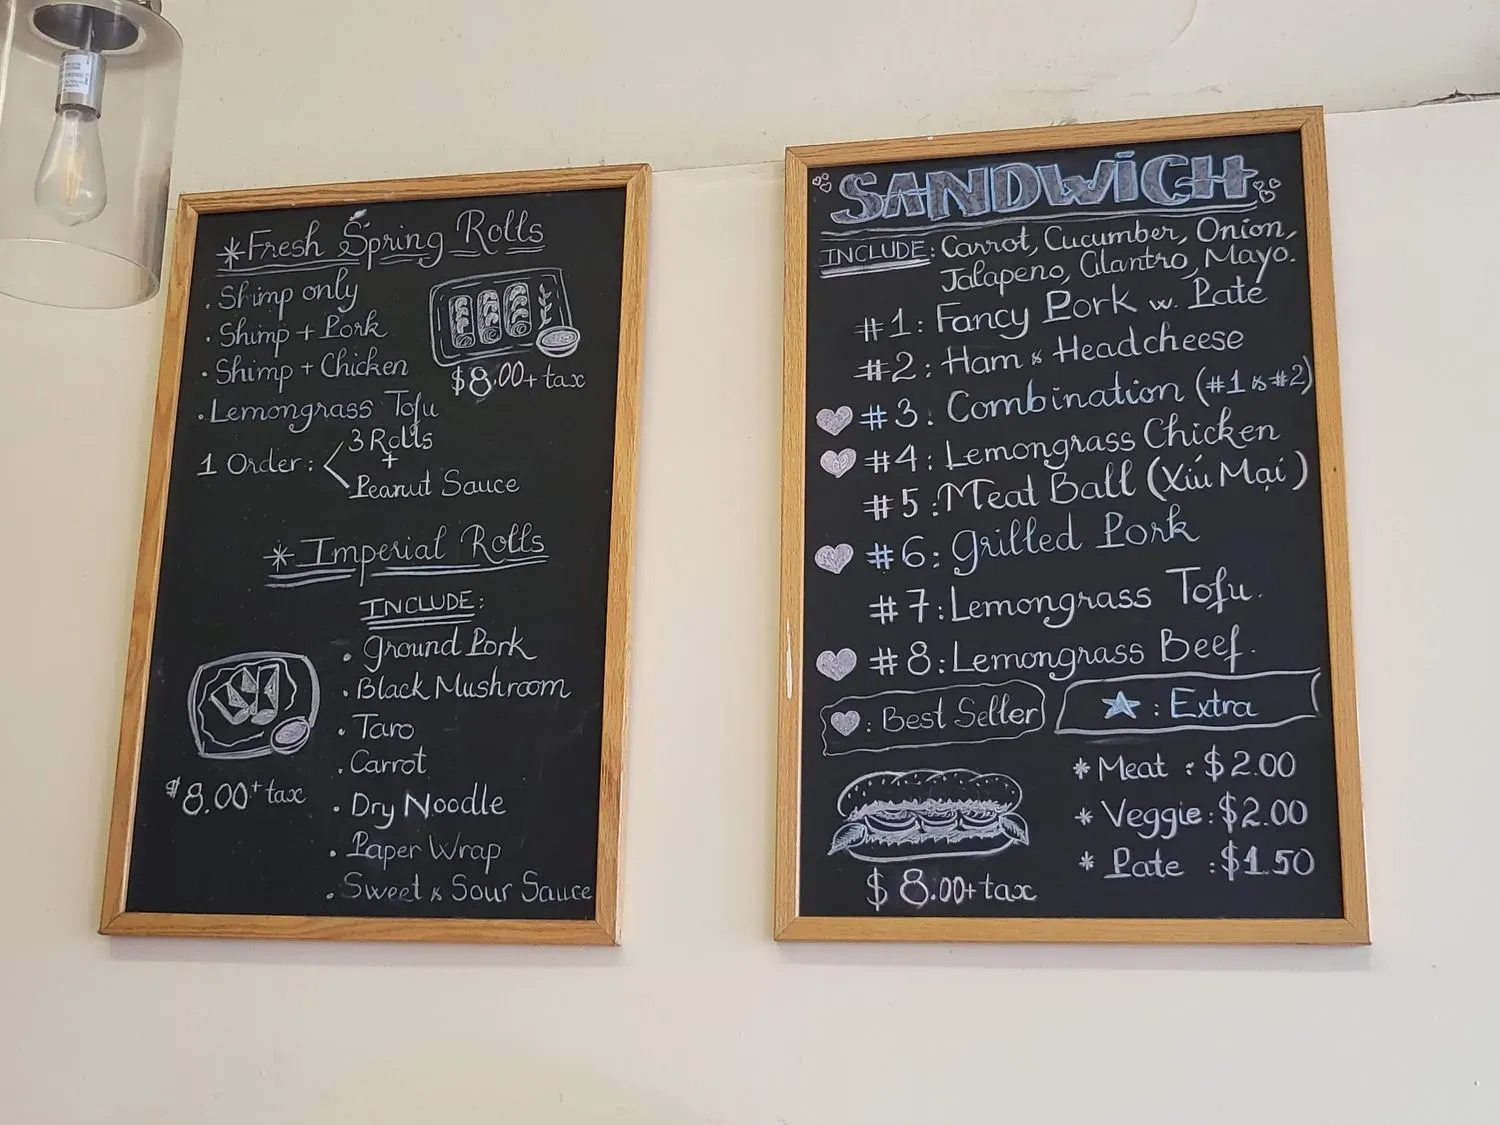 *Fresh Spring Rolls
. Shimp only
. Shimp + Pork
. Shimp + Chicken
. Lemongrass Tofu
$8.00 + tax
1 Order: < 3 Rolls
+
Peanut Sauce
* Imperial Rolls
INCLUDE:
. Ground Pork
. Black Mushroom
. Taro
. Carrot
. Dry Noodle
. Paper Wrap
. Sweet & Sour Sauce
$8.00 + tax
SANDWICH
INCLUDE: Carrot, Cucumber, Onion,
Jalapeno, Cilantro, Mayo.
#1: Fancy Pork w. Pate
#2: Ham & Headcheese
#3: Combination (#1 & #2)
#4: Lemongrass Chicken
#5: Meat Ball (Xiú Mại)
#6: Grilled Pork
#7: Lemongrass Tofu.
#8: Lemongrass Beef.
: Best Seller
: Extra
* Meat : $2.00
* Veggie : $2.00
* Pate : $1.50
$8.00 + tax